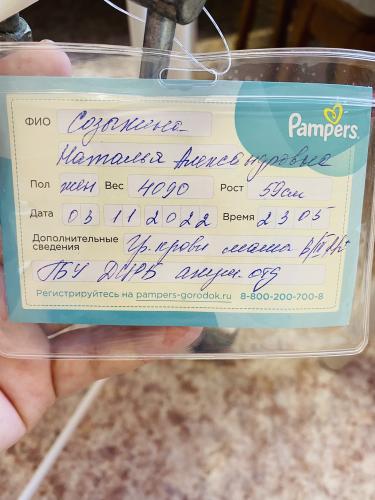 ФИО Созыкина
Pampers
Наталья Александровна
Пол жен Вес 4090 Рост 59см
Дата 03 11 2022 Время 23 05
Дополнительные сведения Гр. крови мама
ГБУ ДЦРБ акуш. отд
Регистрируйтесь на pampers-gorodok.ru 8-800-200-700-8